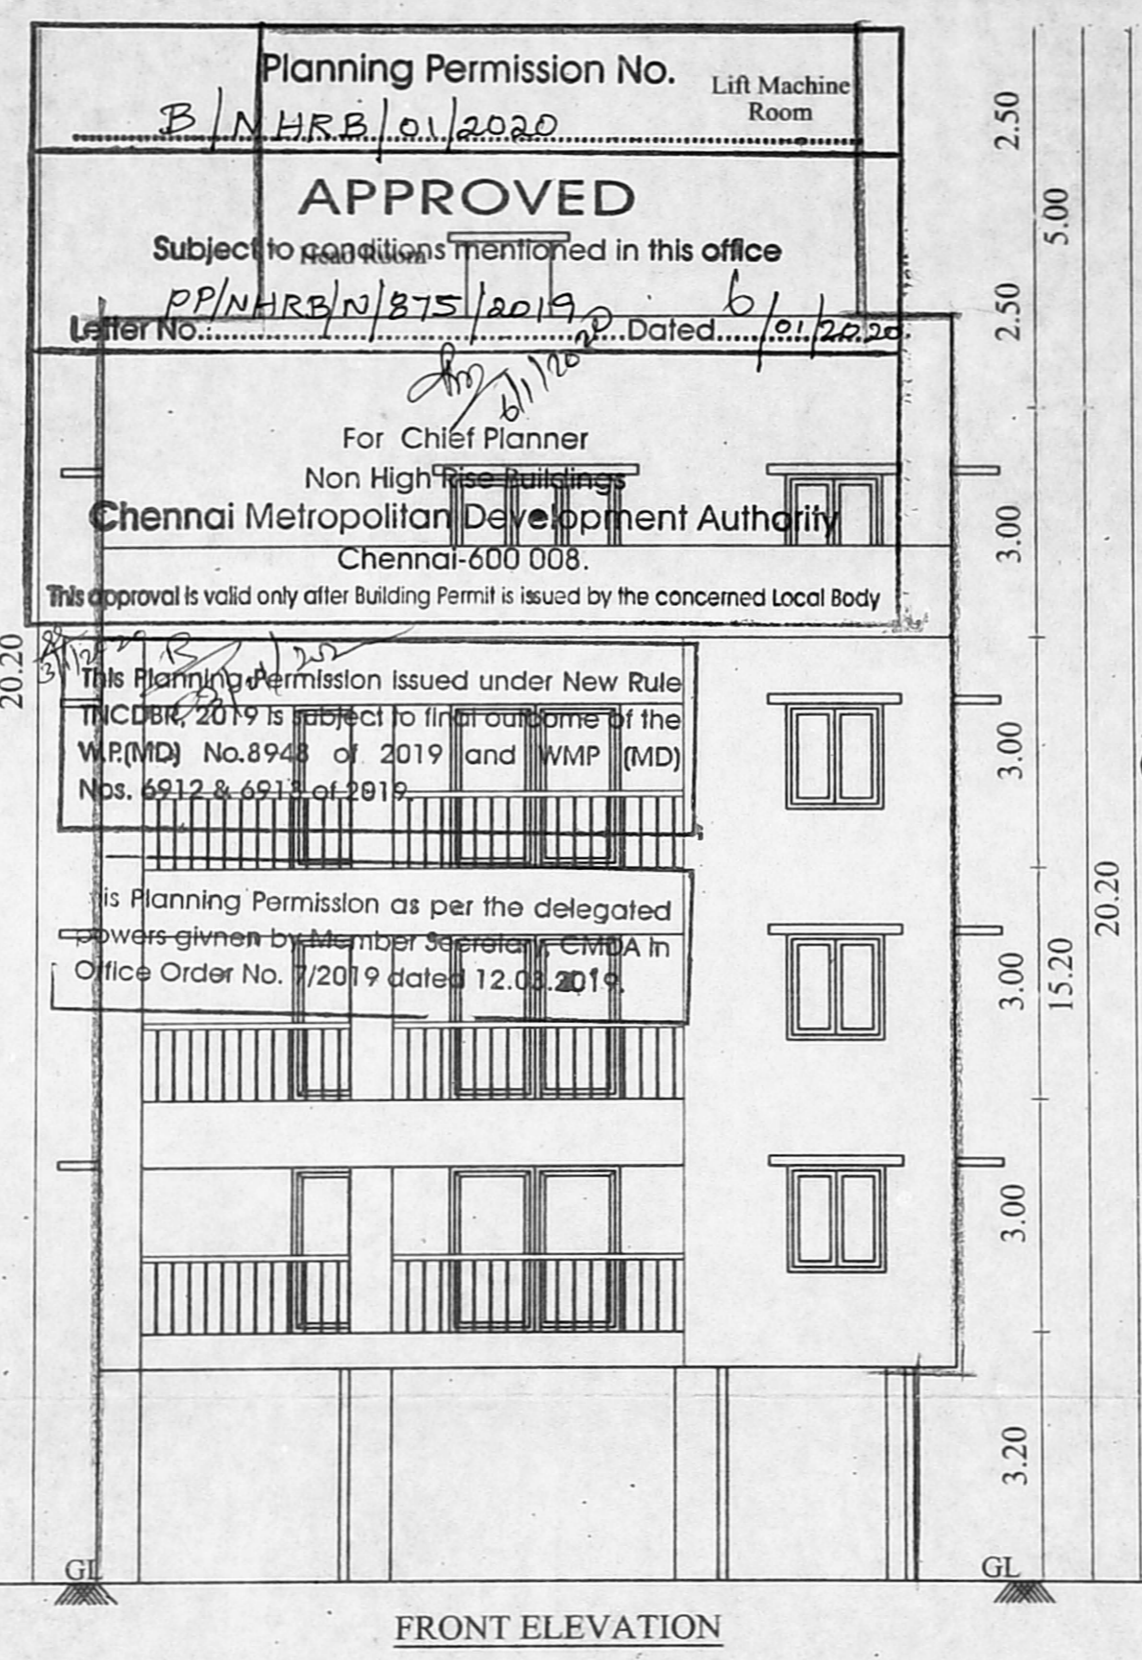 Planning Permission No.
Lift Machine
Room
B/NHRB/01/2020
APPROVED
Subject to conditions mentioned in this office
Head Room
PP/NHRB/N/875/2019
6/01/2020
Letter No.:..........Dated..........
6/1/2020
For Chief Planner
Non High Rise Buildings
Chennai Metropolitan Development Authority
Chennai-600 008.
This approval is valid only after Building Permit is issued by the concerned Local Body
This Planning Permission issued under New Rule
TNCDBR, 2019 is subject to final outcome of the
W.P.(MD) No.8948 of 2019 and WMP (MD)
Nos. 6912 & 6913 of 2019.
is Planning Permission as per the delegated
powers givnen by Member Secretary, CMDA in
Office Order No. 7/2019 dated 12.03.2019.
20.20
2.50
2.50
5.00
3.00
3.00
3.00
3.00
3.20
15.20
20.20
GL
GL
FRONT ELEVATION